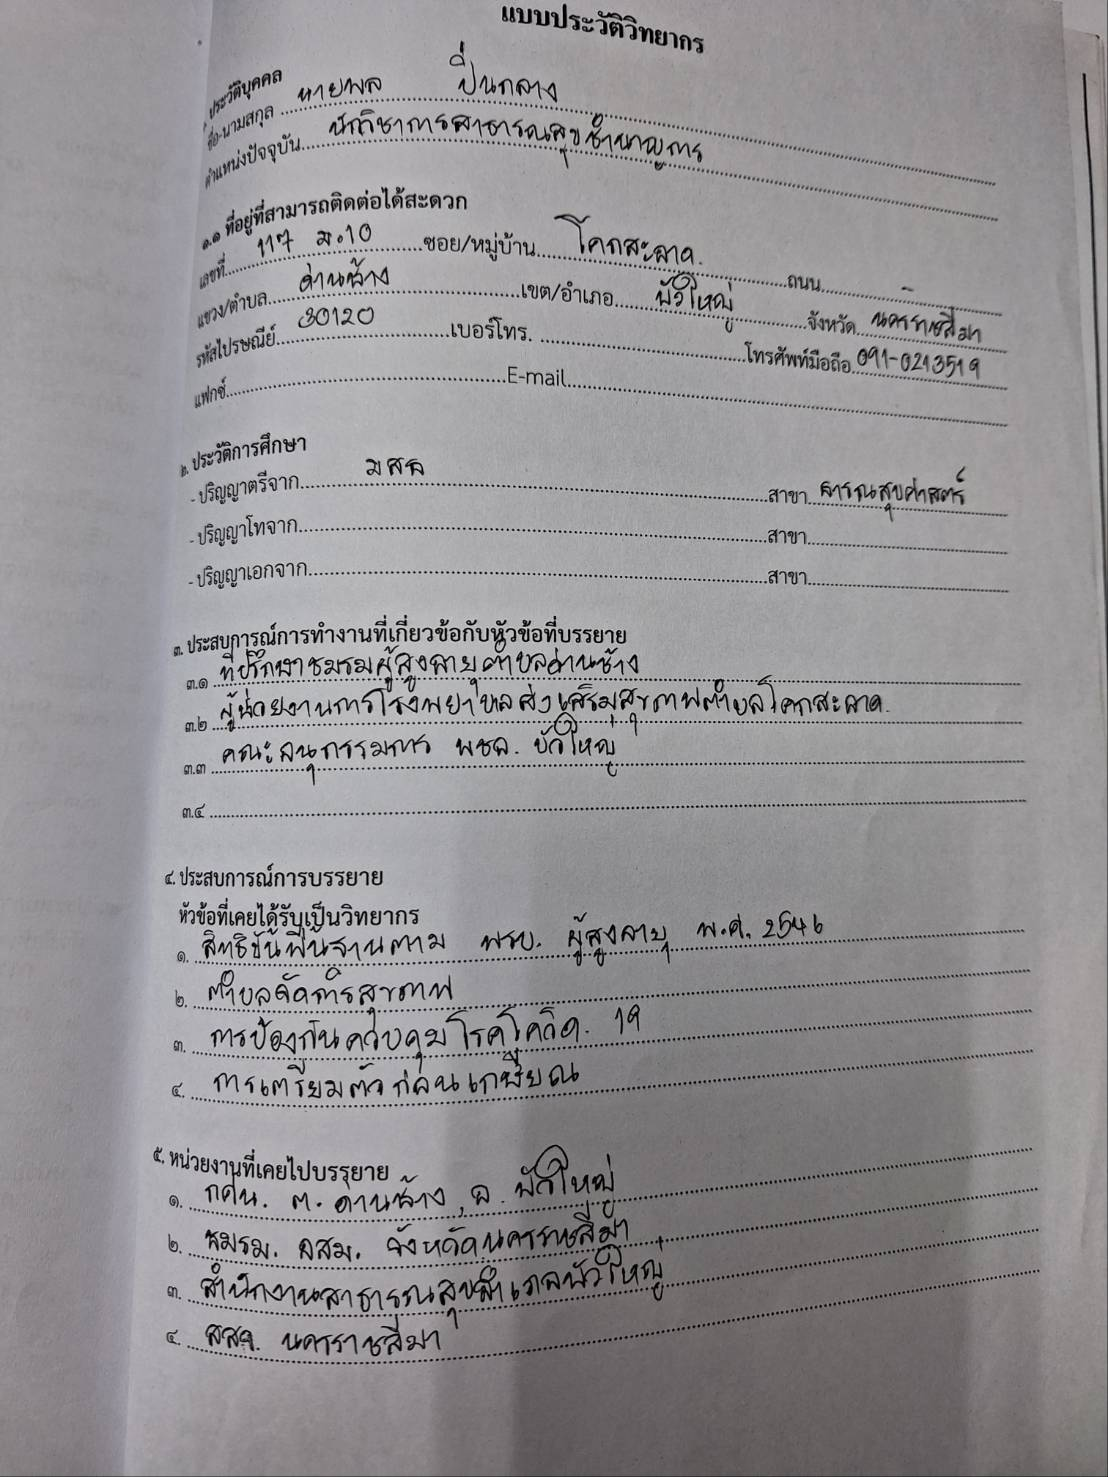 แบบประวัติวิทยากร
๑. ประวัติบุคคล
ชื่อ-นามสกุล หายพล ปิ่นกลาง
ตำแหน่งปัจจุบัน นักวิชาการสาธารณสุขชำนาญการ
๑.๑ ที่อยู่ที่สามารถติดต่อได้สะดวก
เลขที่ 117 ม.10 ซอย/หมู่บ้าน โคกสะอาด. ถนน -
แขวง/ตำบล ด่านช้าง เขต/อำเภอ บัวใหญ่ จังหวัด นครราชสีมา
รหัสไปรษณีย์ 30120 เบอร์โทร. โทรศัพท์มือถือ 091-0213519
แฟกซ์ E-mail
๒. ประวัติการศึกษา
- ปริญญาตรีจาก มสธ สาขา สาธารณสุขศาสตร์
- ปริญญาโทจาก สาขา
- ปริญญาเอกจาก สาขา
๓. ประสบการณ์การทำงานที่เกี่ยวข้อกับหัวข้อที่บรรยาย
๓.๑ ที่ปรึกษาชมรมผู้สูงอายุตำบลด่านช้าง
๓.๒ ผู้อำนวยการโรงพยาบาลส่งเสริมสุขภาพตำบลโคกสะอาด.
๓.๓ คณะอนุกรรมการ พชอ. บัวใหญ่
๓.๔
๔. ประสบการณ์การบรรยาย
หัวข้อที่เคยได้รับเป็นวิทยากร
๑. สิทธิขั้นพื้นฐานตาม พรบ. ผู้สูงอายุ พ.ศ. 2546
๒. ตำบลจัดการสุขภาพ
๓. การป้องกันควบคุมโรคโควิด. 19
๔. การเตรียมตัวก่อนเกษียณ
๕. หน่วยงานที่เคยไปบรรยาย
๑. กศน. ต. ด่านช้าง, อ. บัวใหญ่
๒. ชมรม. อสม. จังหวัดนครราชสีมา
๓. สำนักงานสาธารณสุขอำเภอบัวใหญ่
๔. สสจ. นครราชสีมา